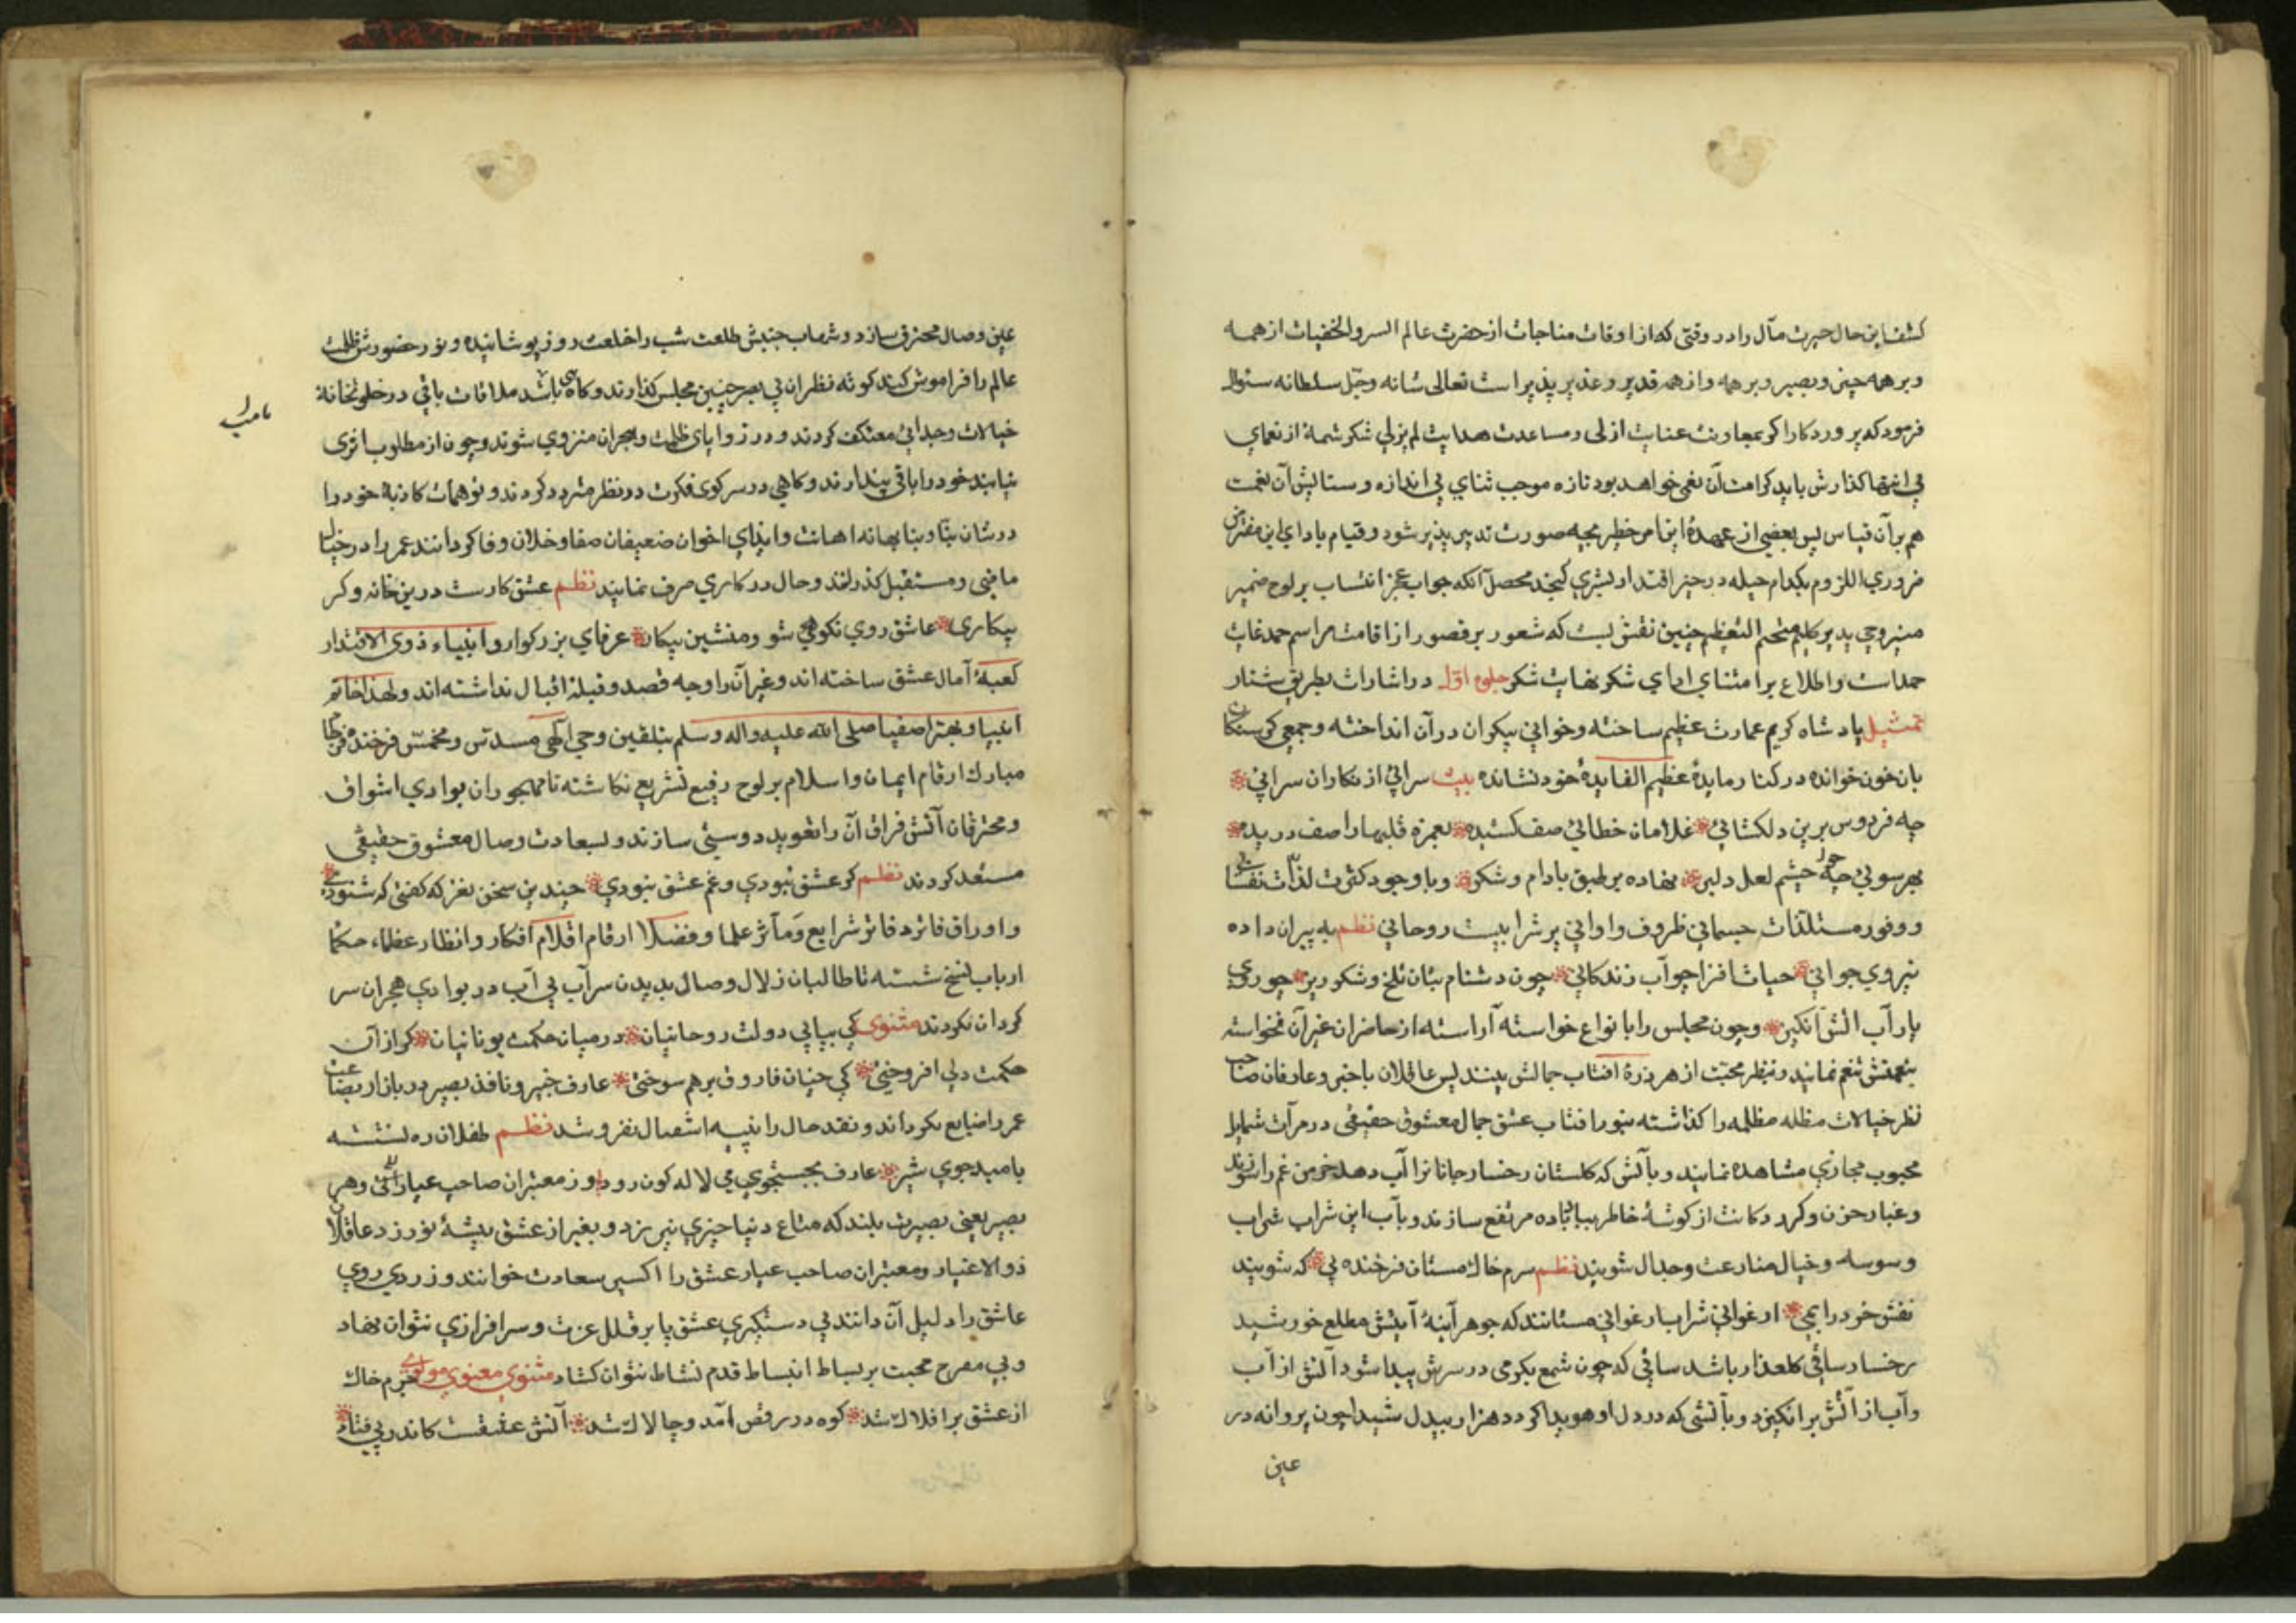 کشف این حال حیرت مآل را در وقتی که از اوقات مناجات از حضرت عالم السر والخفیات از همه
و بر همه چیز و بصیر و بر همه و از همه قدیر و عذیر پذیر است تعالی شانه و جل سلطانه سئوال
فرمود که پروردکارا کر بمعاونت عنایت ازلی و مساعدت هدایت لم یزلی شکر شمهٔ از نعمای
بی انتها کذارش یابد کرامت آن نعمی خواهد بود تازه موجب ثنای بی اندازه و ستایش آن نعمت
هم بر آن قیاس پس بعضی از عهدهٔ این امر خطیر بچه صورت تدبیر پذیر شود و قیام باداء این مفترض
ضروری اللزوم بکدام حیله در حیز اقتدار بشری کنجد محصل آنکه جواب عجز انتساب بر لوح ضمیر
کلیم متحتم التعظیم چنین نقش بست که شعور بر قصور از اقامت مراسم حمد غایت
حمداست و اطلاع بر امتنای ادای شکر نهایت شکر جلوه اول در اشارات بطریق ستار
تمثیل پادشاه کریم عمارت عظیم ساخته و خوانی بیکران در آن انداخته و جمعی کرسنکا
بان خون خوانده در کنار مایدهٔ عظیم الفایدهٔ خود نشانده بیت سرائی از نکاران سرائی
چه فردوس برین دلکشائی غلامان خطائی صف کشیده بغمزه قلبها را صف دریده
بهر سوئی چه چشم لعل دلبر نهاده بر طبق بادام و شکر و با وجود کثرت لذات نفسا
و وفور مستلذات جسمانی ظروف و اوانی پر شرابیست روحانی نظم به پیران داده
نیروی جوانی حیات افزا چو آب زندکانی چون دشنام بتان تلخ و شکر ریز چو روی
یار آب اتش انکیز و چون مجلس را بانواع خواسته آراسته از حاضران غیر آن نخواسته
بنعمتش تنعم نمایند و بنظر محبت از هر ذرهٔ افتاب جمالش بینند پس عاقلان باخبر و عارفان صاحب
نظر خیالات مظله مظلمه را کذاشته بنور افتاب عشق جمال معشوق حقیقی در مرآت شمایل
محبوب مجازی مشاهده نمایند و بآتش که کلستان رخسار جانانرا آب دهد خرمن غم را سوزند
و غبار حزن و کرد کانت از کوشهٔ خاطر بباد باده مرتفع سازند و بآب این شراب شراب
وسوسه و خیال منازعت و جدال شویند نظم سرم خاک مستان فرخنده پی که شویند
نقش خرد را بمی ارغوانی شراب ارغوانی مستانند که جوهر آینهٔ آیتش مطلع خورشید
رخسار ساقی کلعذار باشد ساقی که چون شمع بکرمی در سرش پیدا شود آتش از آب
و آب از آتش بر انکیزد و بآتشی که در دل او هویدا کردد هزار بیدل شیدا چون پروانه در
عین
عین وصال محترق سازد و شهاب جنبش طلعت شب را خلعت روز پوشانیده و نور حضورش ظلمت
عالم را فراموش کنند کوته نظران بی بصر چنین مجلس کذارند و کاهی باشد ملاقات باقی در خلوتخانهٔ
نامراد
خیالات وجدانی معتکف کردند و در زوایای ظلمت و هجران منزوی شوند و چون از مطلوب اثری
نیابند خود را باقی پندارند و کاهی در سر کوی فکرت در نظر متردد کردند و توهمات کاذبهٔ خود را
در شان بهانه اهانت و ایذای اخوان ضعیفان صفا و خلان وفا کردانند عمر را در خیال
ماضی و مستقبل کذرانند و حال در کاری صرف نمایند نظم عشق کارست درین خانه و کر
بیکاری عاشق روی نکوهی شو و منشین بیکار عرفای بزرکوار و انبیاء ذوی الاقتدار
کعبهٔ آمال عشق ساخته اند و غیر آن را وجه قصد و قبلهٔ اقبال نداشته اند و لهذا خاتم
انبیا و بهتر اصفیا صلی الله علیه و اله و سلم بتلقین وحی الهی مسدس و مخمس فرخنده فرجام
مبارک ارقام ایمان و اسلام بر لوح رفیع تشریع نکاشته تا مهجوران بوادی اشواق
و محترقان آتش فراق آن را تعوید دوستی سازند و بسعادت وصال معشوق حقیقی
مستعد کردند نظم کر عشق نبودی و غم عشق نبودی چندین سخن نغز که کفتی که شنودی
و اوراق شرایع و مآثر علما و فضلا ارقام اقلام افکار و انظار عظماء حکما
ارباب نسخ شسته تا طالبان زلال وصال بدیدن سراب بی آب در بوادی هجران سر
کردان نکردند مثنوی کی بیابی دولت روحانیان در میان حکمت یونانیان کر از آن
حکمت دلی افروختی کی چنان فاروق برهم سوختی عارف خبیر و نافذ بصیر در بازار بضاعت
عمر را ضایع نکرداند و نقد حال را بنسیه استقبال نفروشد نظم طفلان ره نشسته
بامید جوی شیر عارف بجستجوی می لاله کون رود و ز معتبران صاحب عیار و هر
بصیر یعنی بصیرت بلند که متاع دنیا چیزی نیرزد و بغیر از عشق پیشهٔ نورزد عاقلان
ذو الاعتبار و معتبران صاحب عیار عشق را اکسیر سعادت خوانند و زردی روی
عاشق را دلیل آن دانند بی دستکیری عشق پا بر قلل عزت و سرافرازی نتوان نهاد
و بی مفرح محبت بر بساط انبساط قدم نشاط نتوان کشاد مثنوی معنوی مولوی جرم خاک
از عشق بر افلاک شد کوه در رقص آمد و چالاک شد آتش عشقست کاندر نی فتاد